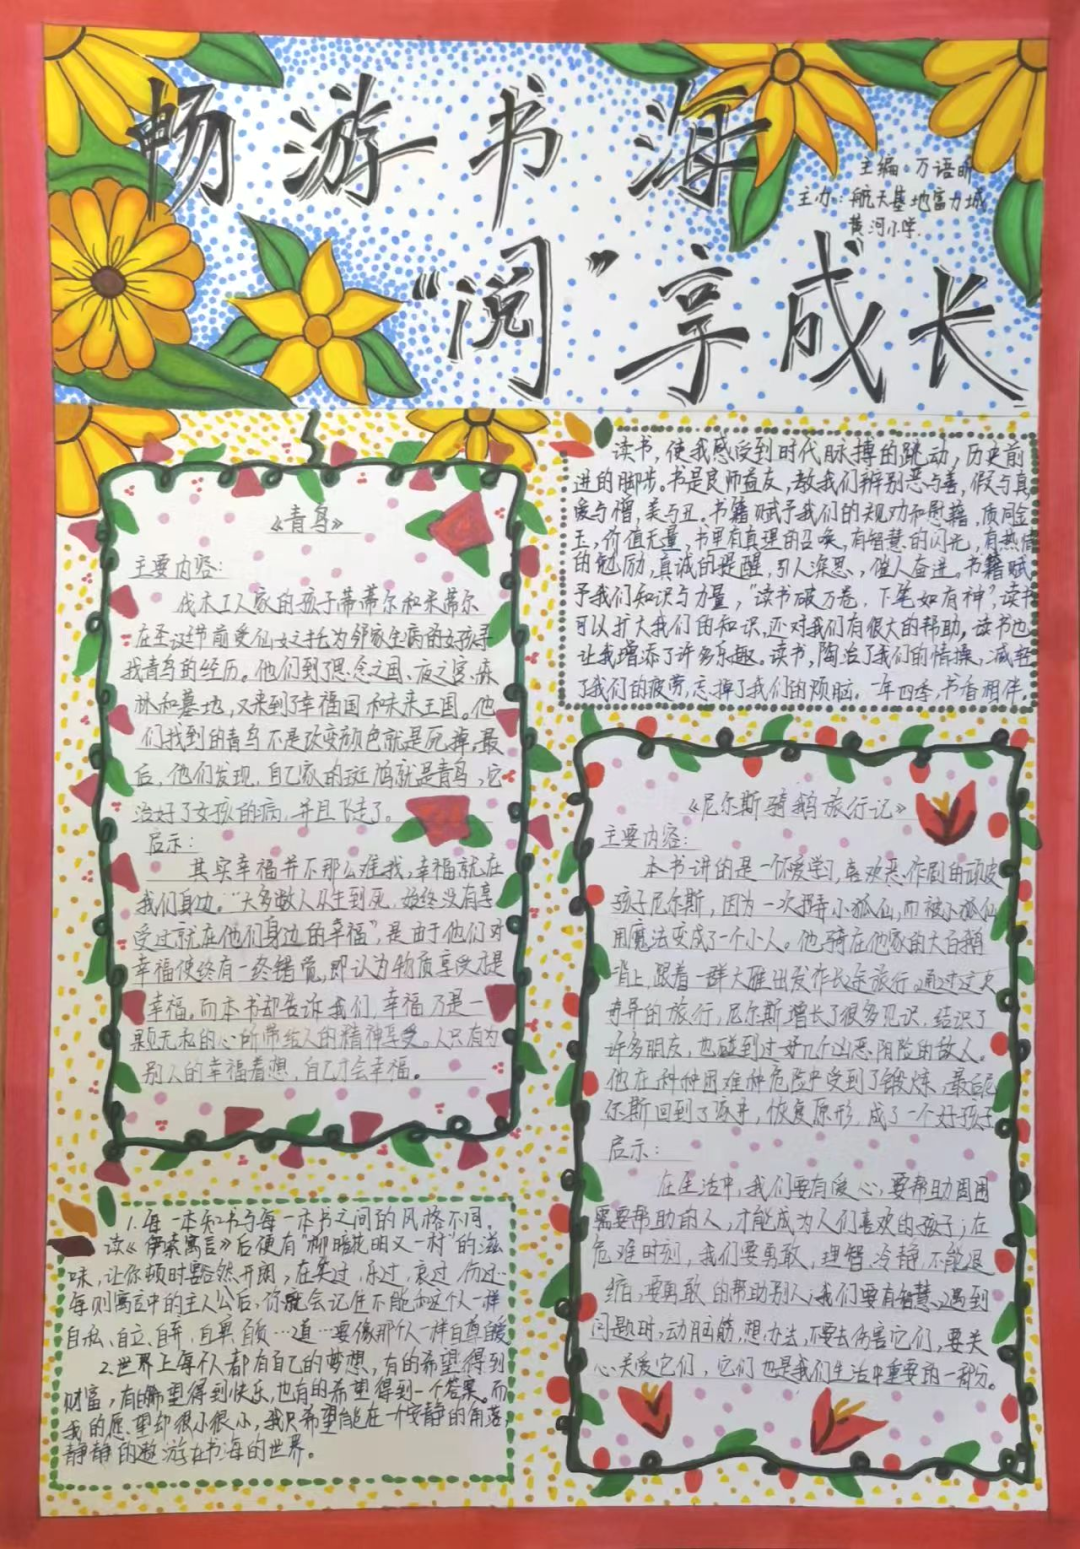 畅游书海
主编：万语
主办：航天基地富力城
黄河小学
“阅”享成长
读书，使我感受到时代脉搏的跳动，历史前
进的脚步。书是良师益友，教我们辨别恶与善，假与真
爱与憎，美与丑。书籍赋予我们的规劝和慰藉，质同金
玉，价值无量，书里有真理的召唤，有智慧的闪光，有热情
的勉励，真诚的提醒，引人深思，催人奋进。书籍赋
予我们知识与力量，“读书破万卷，下笔如有神”，读书
可以扩大我们的知识，还对我们有很大的帮助，读书也
让我增添了许多乐趣。读书，陶冶了我们的情操，减轻
了我们的疲劳，忘掉了我们的烦脑。一年四季，书香相伴。
《青鸟》
主要内容：
伐木工人家的孩子蒂蒂尔和米蒂尔
在圣诞节前受仙女之托为邻家生病的女孩寻
找青鸟的经历。他们到了思念之国、夜之宫、森
林和墓地，又来到了幸福国和未来王国。他
们找到的青鸟不是改变颜色就是死掉，最
后，他们发现，自己家的斑鸠就是青鸟，它
治好了女孩的病，并且飞走了。
启示：
其实幸福并不那么难找，幸福就在
我们身边。“大多数人从生到死，始终没有享
受过就在他们身边的幸福”，是由于他们对
幸福使终有一终错觉，即认为物质享受才是
幸福。而本书却告诉我们，幸福乃是一
颗无私的心所带给人的精神享受。人只有为
别人的幸福着想，自己才会幸福。
《尼尔斯骑鹅旅行记》
主要内容：
本书讲的是一个不爱学习，喜欢恶作剧的顽皮
孩子尼尔斯，因为一次捉弄小狐仙，而被小狐仙
用魔法变成了一个小人。他骑在他家的大白鹅
背上，跟着一群大雁出发作长途旅行。通过这次
奇异的旅行，尼尔斯增长了很多见识，结识了
许多朋友，也碰到过好几个凶恶阴险的敌人。
他在种种困难种危险中受到了锻炼，最后尼
尔斯回到了家乡，恢复原形，成了一个好孩子
启示：
在生活中，我们要有爱心，要帮助周围
需要帮助的人，才能成为人们喜欢的孩子；在
危难时刻，我们要勇敢，理智，冷静，不能退
缩，要勇敢的帮助别人；我们要有智慧，遇到
问题时，动脑筋，想办法，不要去伤害它们，要关
心关爱它们，它们也是我们生活中重要的一部分。
1.每一本书与每一本书之间的风格不同。
读《伊索寓言》后便有“柳暗花明又一村”的滋
味，让你顿时豁然开朗，在笑过，乐过，哀过，伤过
每则寓言中的主人公后，你就会记住不能和这个人一样
自私、自立、自弃、自卑、自质…道…要像那个人一样自尊自爱
2.世界上每个人都有自己的梦想，有的希望得到
财富，有的希望得到快乐，也有的希望得到一个答案。而
我的愿望却很小很小，我只希望能在一个安静的角落
静静的遨游在书海的世界。